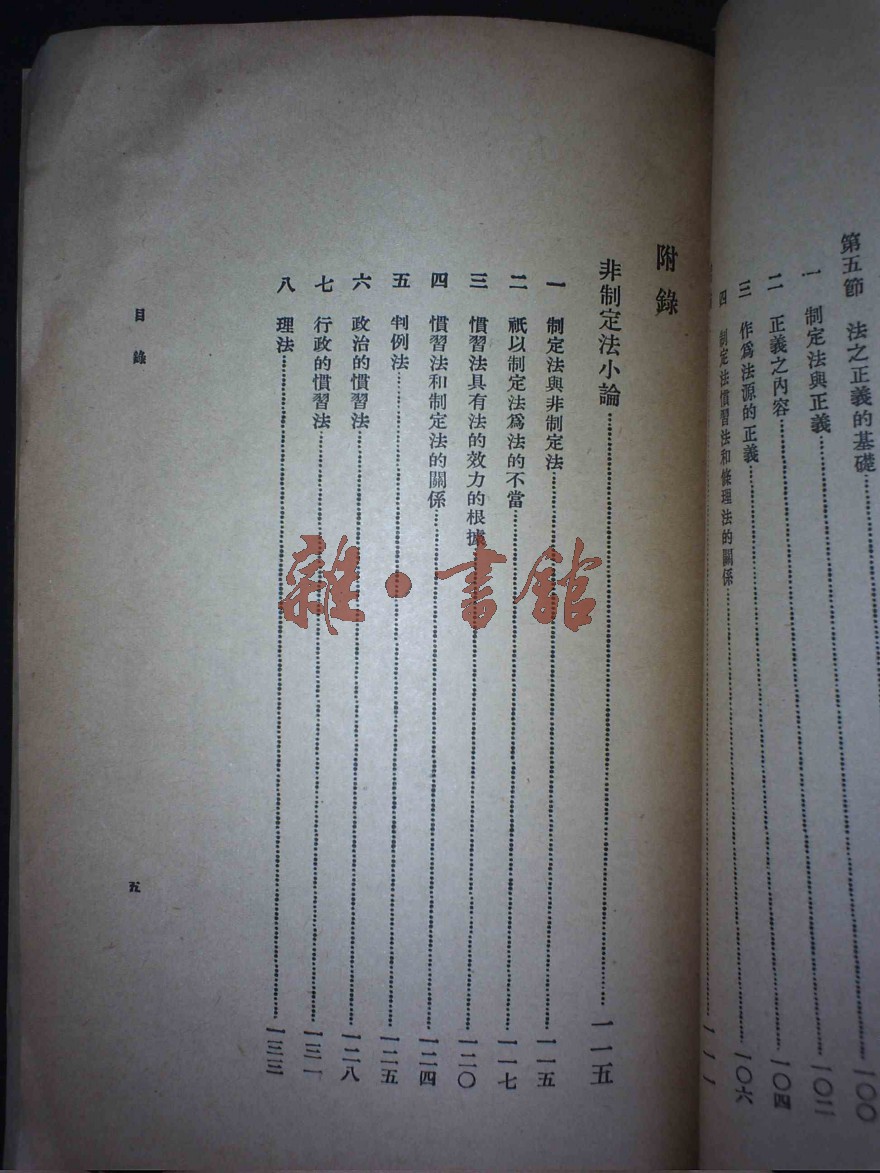 第五節　法之正義的基礎……一〇〇
一　制定法與正義……一〇二
二　正義之內容……一〇四
三　作爲法源的正義……一〇六
四　制定法慣習法和條理法的關係
一一一
附錄
非制定法小論……一一五
一　制定法與非制定法……一一五
二　祇以制定法爲法的不當……一一七
三　慣習法具有法的效力的根據……一二〇
四　慣習法和制定法的關係……一二四
五　判例法……一二五
六　政治的慣習法……一二八
七　行政的慣習法……一三一
八　理法……一三三
目錄
五
雜·書館